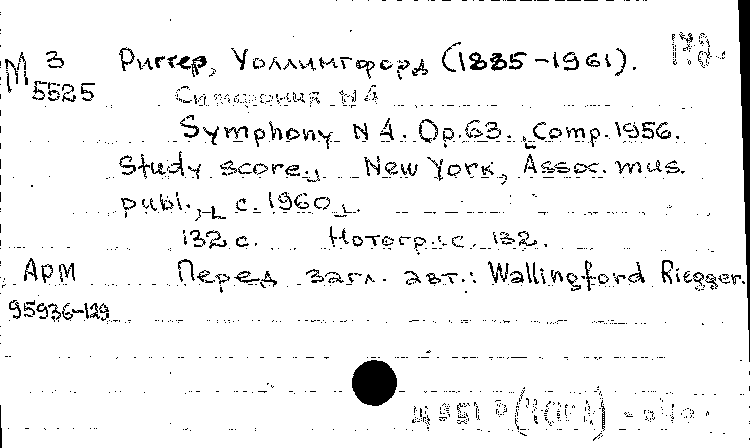 М 3 Риггер, Уоллингфорд (1885-1961).
5525 Симфония N 4
Symphony N 4. Op.63. Comp. 1956.
Study score. New York, Assoc. mus.
publ., [ c. 1960 ].
132 с. Нотогр.: с. 132.
АРМ Перед загл. авт.: Wallingford Riegger.
95936-129